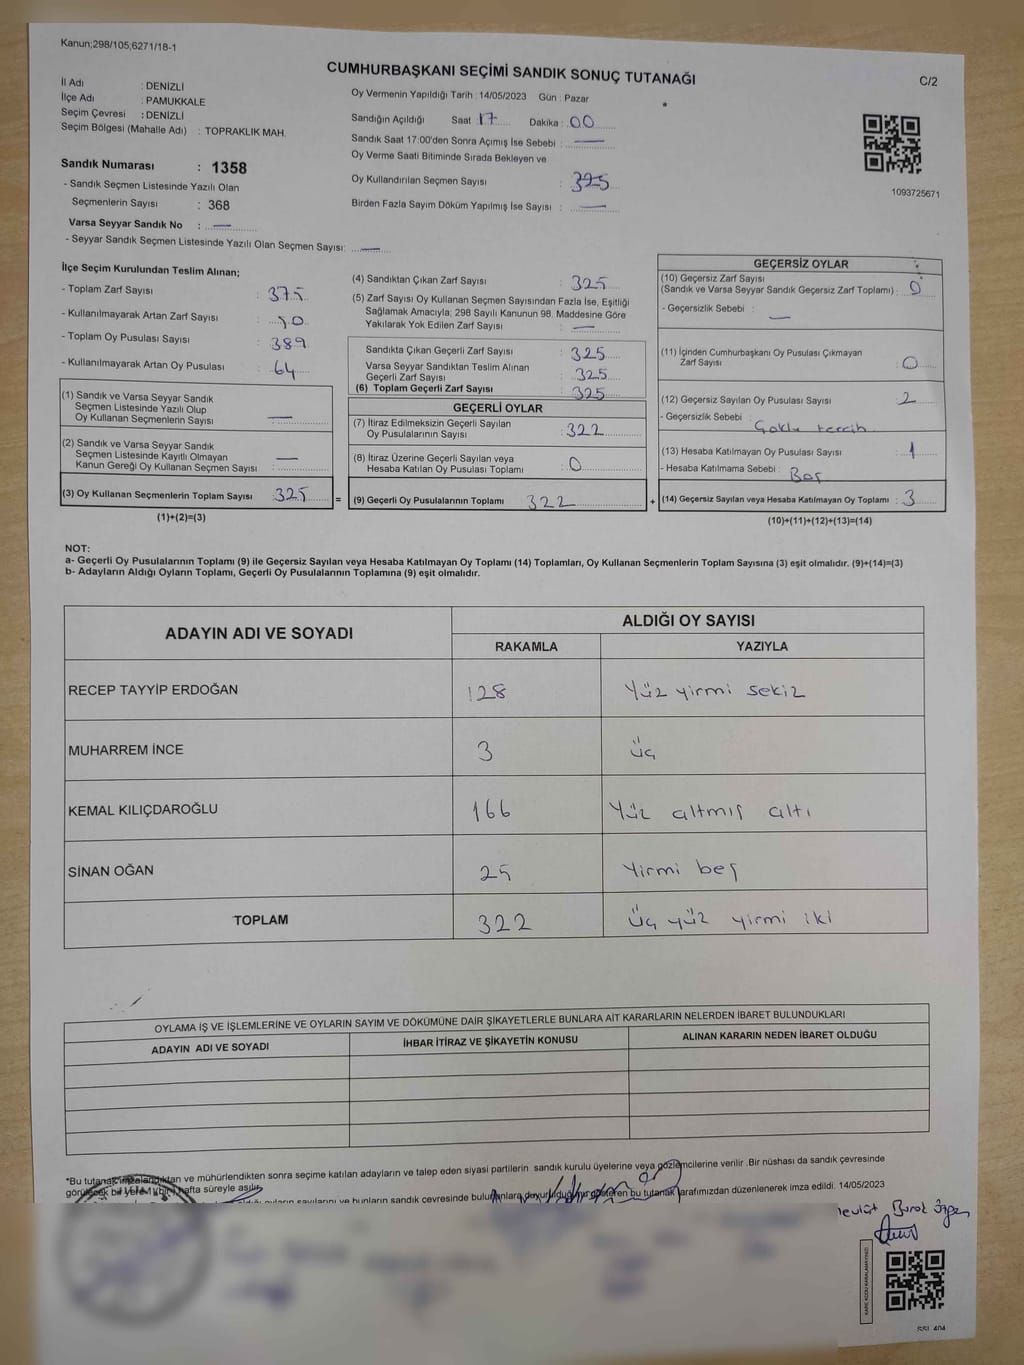 Kanun;298/105;6271/18-1
CUMHURBAŞKANI SEÇİMİ SANDIK SONUÇ TUTANAĞI
C/2
İl Adı : DENİZLİ
İlçe Adı : PAMUKKALE
Seçim Çevresi : DENİZLİ
Seçim Bölgesi (Mahalle Adı) : TOPRAKLIK MAH.
Sandık Numarası : 1358
- Sandık Seçmen Listesinde Yazılı Olan
Seçmenlerin Sayısı : 368
Varsa Seyyar Sandık No : —
- Seyyar Sandık Seçmen Listesinde Yazılı Olan Seçmen Sayısı: —
Oy Vermenin Yapıldığı Tarih : 14/05/2023 Gün : Pazar
Sandığın Açıldığı Saat 17 Dakika : 00
Sandık Saat 17:00'den Sonra Açımış İse Sebebi : —
Oy Verme Saati Bitiminde Sırada Bekleyen ve
Oy Kullandırılan Seçmen Sayısı : 325
Birden Fazla Sayım Döküm Yapılmış İse Sayısı : —
1093725671
İlçe Seçim Kurulundan Teslim Alınan;
- Toplam Zarf Sayısı : 375
- Kullanılmayarak Artan Zarf Sayısı : 50
- Toplam Oy Pusulası Sayısı : 389
- Kullanılmayarak Artan Oy Pusulası : 64
(1) Sandık ve Varsa Seyyar Sandık
Seçmen Listesinde Yazılı Olup
Oy Kullanan Seçmenlerin Sayısı : —
(2) Sandık ve Varsa Seyyar Sandık
Seçmen Listesinde Kayıtlı Olmayan
Kanun Gereği Oy Kullanan Seçmen Sayısı : —
(3) Oy Kullanan Seçmenlerin Toplam Sayısı : 325 =
(1)+(2)=(3)
(4) Sandıktan Çıkan Zarf Sayısı : 325
(5) Zarf Sayısı Oy Kullanan Seçmen Sayısından Fazla İse, Eşitliği
Sağlamak Amacıyla; 298 Sayılı Kanunun 98. Maddesine Göre
Yakılarak Yok Edilen Zarf Sayısı : —
Sandıkta Çıkan Geçerli Zarf Sayısı : 325
Varsa Seyyar Sandıktan Teslim Alınan
Geçerli Zarf Sayısı : 325
(6) Toplam Geçerli Zarf Sayısı : 325
GEÇERLİ OYLAR
(7) İtiraz Edilmeksizin Geçerli Sayılan
Oy Pusulalarının Sayısı : 322
(8) İtiraz Üzerine Geçerli Sayılan veya
Hesaba Katılan Oy Pusulası Toplamı : 0
(9) Geçerli Oy Pusulalarının Toplamı 322 +
GEÇERSİZ OYLAR
(10) Geçersiz Zarf Sayısı
(Sandık ve Varsa Seyyar Sandık Geçersiz Zarf Toplamı) : 0
- Geçersizlik Sebebi : —
(11) İçinden Cumhurbaşkanı Oy Pusulası Çıkmayan
Zarf Sayısı : 0
(12) Geçersiz Sayılan Oy Pusulası Sayısı : 2
- Geçersizlik Sebebi : Çoklu tercih
(13) Hesaba Katılmayan Oy Pusulası Sayısı : 1
- Hesaba Katılmama Sebebi : Boş
(14) Geçersiz Sayılan veya Hesaba Katılmayan Oy Toplamı : 3
(10)+(11)+(12)+(13)=(14)
NOT:
a- Geçerli Oy Pusulalarının Toplamı (9) ile Geçersiz Sayılan veya Hesaba Katılmayan Oy Toplamı (14) Toplamları, Oy Kullanan Seçmenlerin Toplam Sayısına (3) eşit olmalıdır. (9)+(14)=(3)
b- Adayların Aldığı Oyların Toplamı, Geçerli Oy Pusulalarının Toplamına (9) eşit olmalıdır.
ADAYIN ADI VE SOYADI ALDIĞI OY SAYISI
RAKAMLA YAZIYLA
RECEP TAYYİP ERDOĞAN 128 Yüz yirmi sekiz
MUHARREM İNCE 3 üç
KEMAL KILIÇDAROĞLU 166 Yüz altmış altı
SİNAN OĞAN 25 Yirmi beş
TOPLAM 322 üç yüz yirmi iki
OYLAMA İŞ VE İŞLEMLERİNE VE OYLARIN SAYIM VE DÖKÜMÜNE DAİR ŞİKAYETLERLE BUNLARA AİT KARARLARIN NELERDEN İBARET BULUNDUKLARI
ADAYIN ADI VE SOYADI İHBAR İTİRAZ VE ŞİKAYETİN KONUSU ALINAN KARARIN NEDEN İBARET OLDUĞU
*Bu tutanak imzalandıktan ve mühürlendikten sonra seçime katılan adayların ve talep eden siyasi partilerin sandık kurulu üyelerine veya gözlemcilerine verilir .Bir nüshası da sandık çevresinde
görülecek bir yere 1(bir) hafta süreyle asılır.
oyların sayılarını ve bunların sandık çevresinde bulunanlara duyurulduğunu gösteren bu tutanak tarafımızdan düzenlenerek imza edildi. 14/05/2023
SSI_404